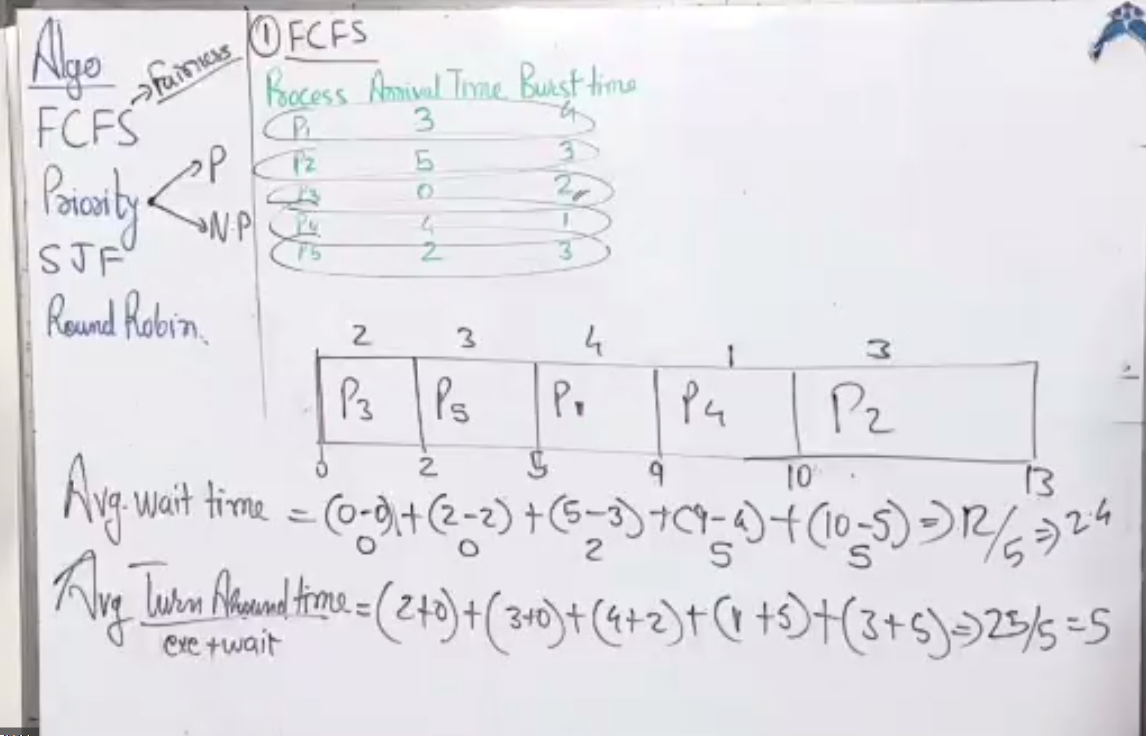 Algo
FCFS → Fairness
Priority
P
N.P
SJF
Round Robin.
① FCFS
Process Arrival Time Burst time
P1 3 4
P2 5 3
P3 0 2
P4 4 1
P5 2 3
2 3 4 1 3
P3 P5 P1 P4 P2
0 2 5 9 10 13
Avg. wait time = (0-0)+(2-2)+(5-3)+(9-4)+(10-5)⇒12/5⇒2.4
0 0 2 5 5
Avg Turn Around time=(2+0)+(3+0)+(4+2)+(1+5)+(3+5)⇒25/5=5
exe+wait